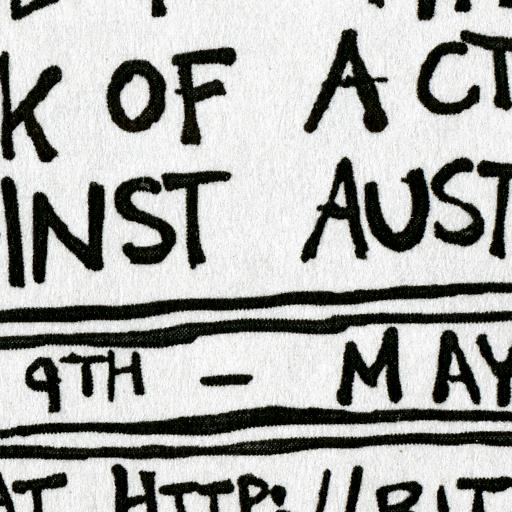 K OF ACT
INST AUST
9TH - MAY
AT HTTP://BIT